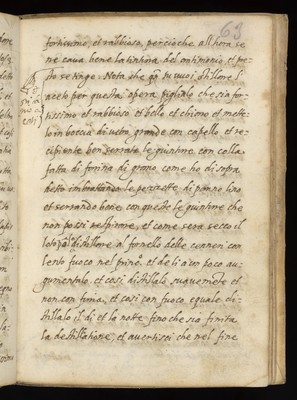 63
fortissimo, et rabbioso, perciò che all'hora se
ne cava bene la tintura del antimonio, et pre
sto se tinge. Nota che qñ tu vuoi distillare l'
aceto per questa opera piglialo che sia for
tissimo et rabbioso et bello et chiaro et mette
lo in boccia di vetro grande con capello et re
cipiente ben serrate le giunture con colla
fatta di farina di grano, come ho di sopra
detto imbrattando le pezzette di panno lino
et serrando bene con queste le giunture che
non possi respirare, et come sera secco il
loto distillare al fornello delle cenneri con
lento fuoco nel prine. et de li a un poco au
gumentalo, et così distillalo suavemẽte et
non con furia, et così con fuoco equale di
stillalo il dì et la notte fino che sia finita
la destillatione, et avertissi che nel fine